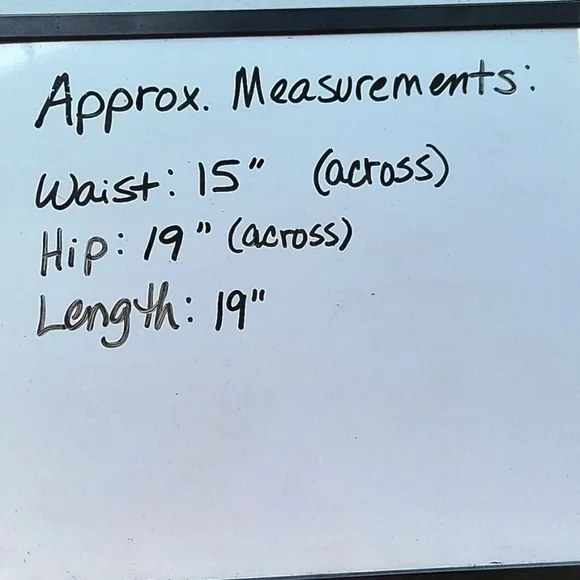 Approx. Measurements:
Waist: 15" (across)
Hip: 19" (across)
Length: 19"